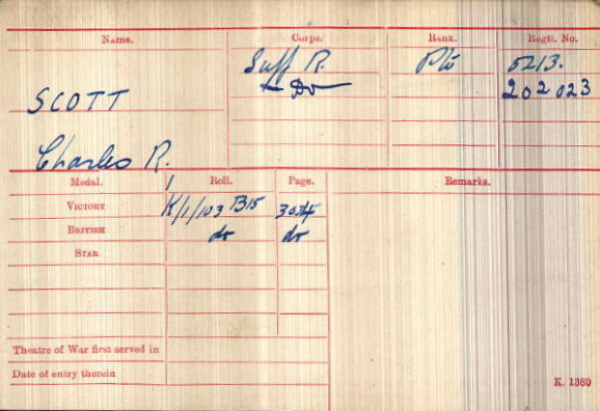 Name. Corps. Rank. Regtl. No.
SCOTT Suff R. Pte 5213.
Do 202023
Charles R.
Medal. Roll. Page. Remarks.
VICTORY K/1/103 B15
BRITISH do do
STAR
Theatre of War first served in
Date of entry therein
K. 1380